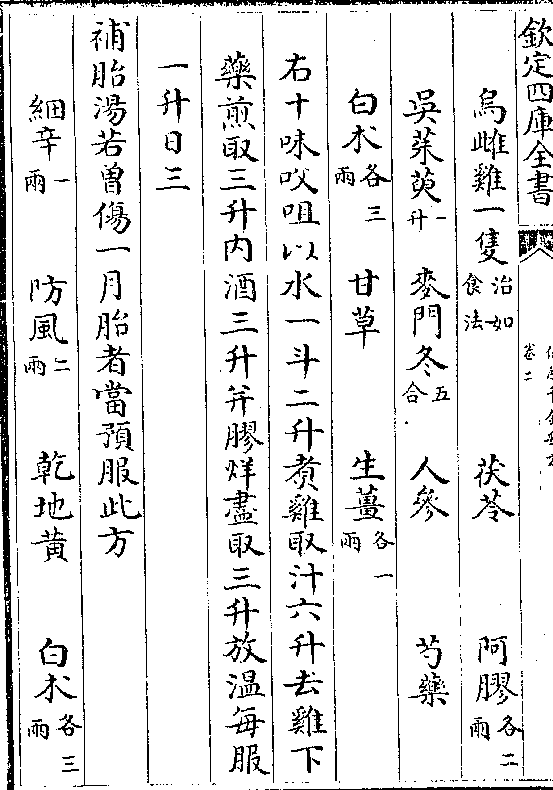 欽定四庫全書
卷二
烏雌雞一隻治如食法 茯苓 阿膠各二兩
吳茱萸一升 麥門冬五合 人參 芍藥
白朮各三兩 甘草 生薑各一兩
右十味㕮咀以水一斗二升煑雞取汁六升去雞下
藥煎取三升内酒三升并膠烊盡取三升放溫每服
一升日三
補胎湯若曾傷一月胎者當預服此方
細辛一兩 防風二兩 乾地黄 白朮各三兩